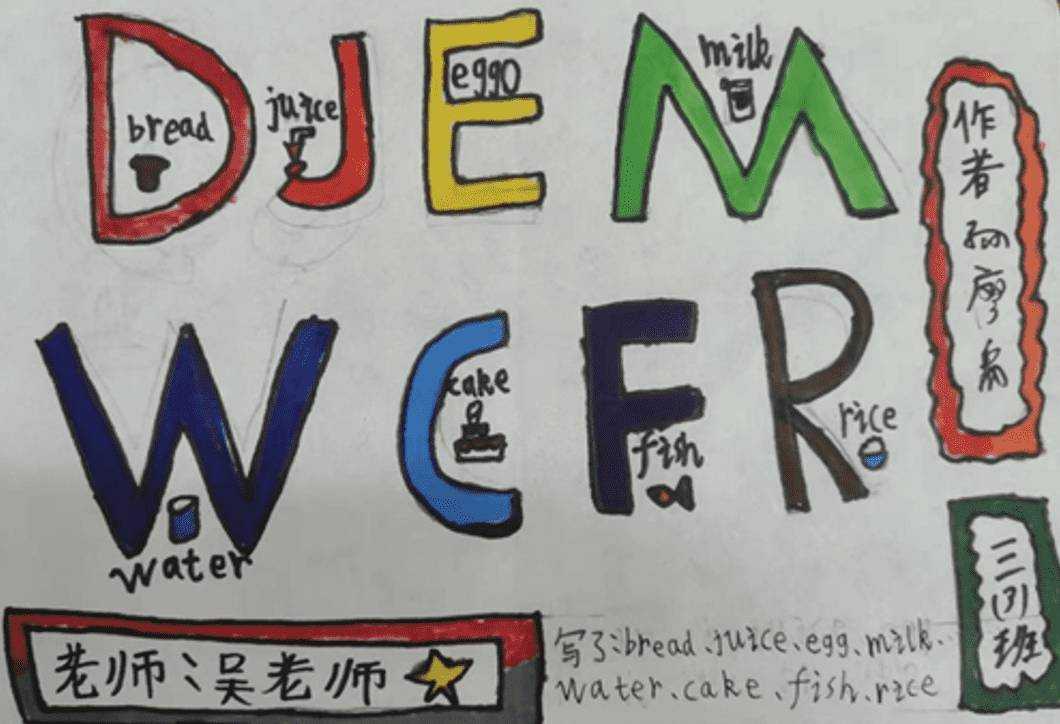 D J E M
bread
juice
eggo
milk
W C F R
water
cake
fish
rice
作者孙廖
三(3)班
老师:吴老师
写了:bread、juice、egg、milk、
water、cake、fish、rice